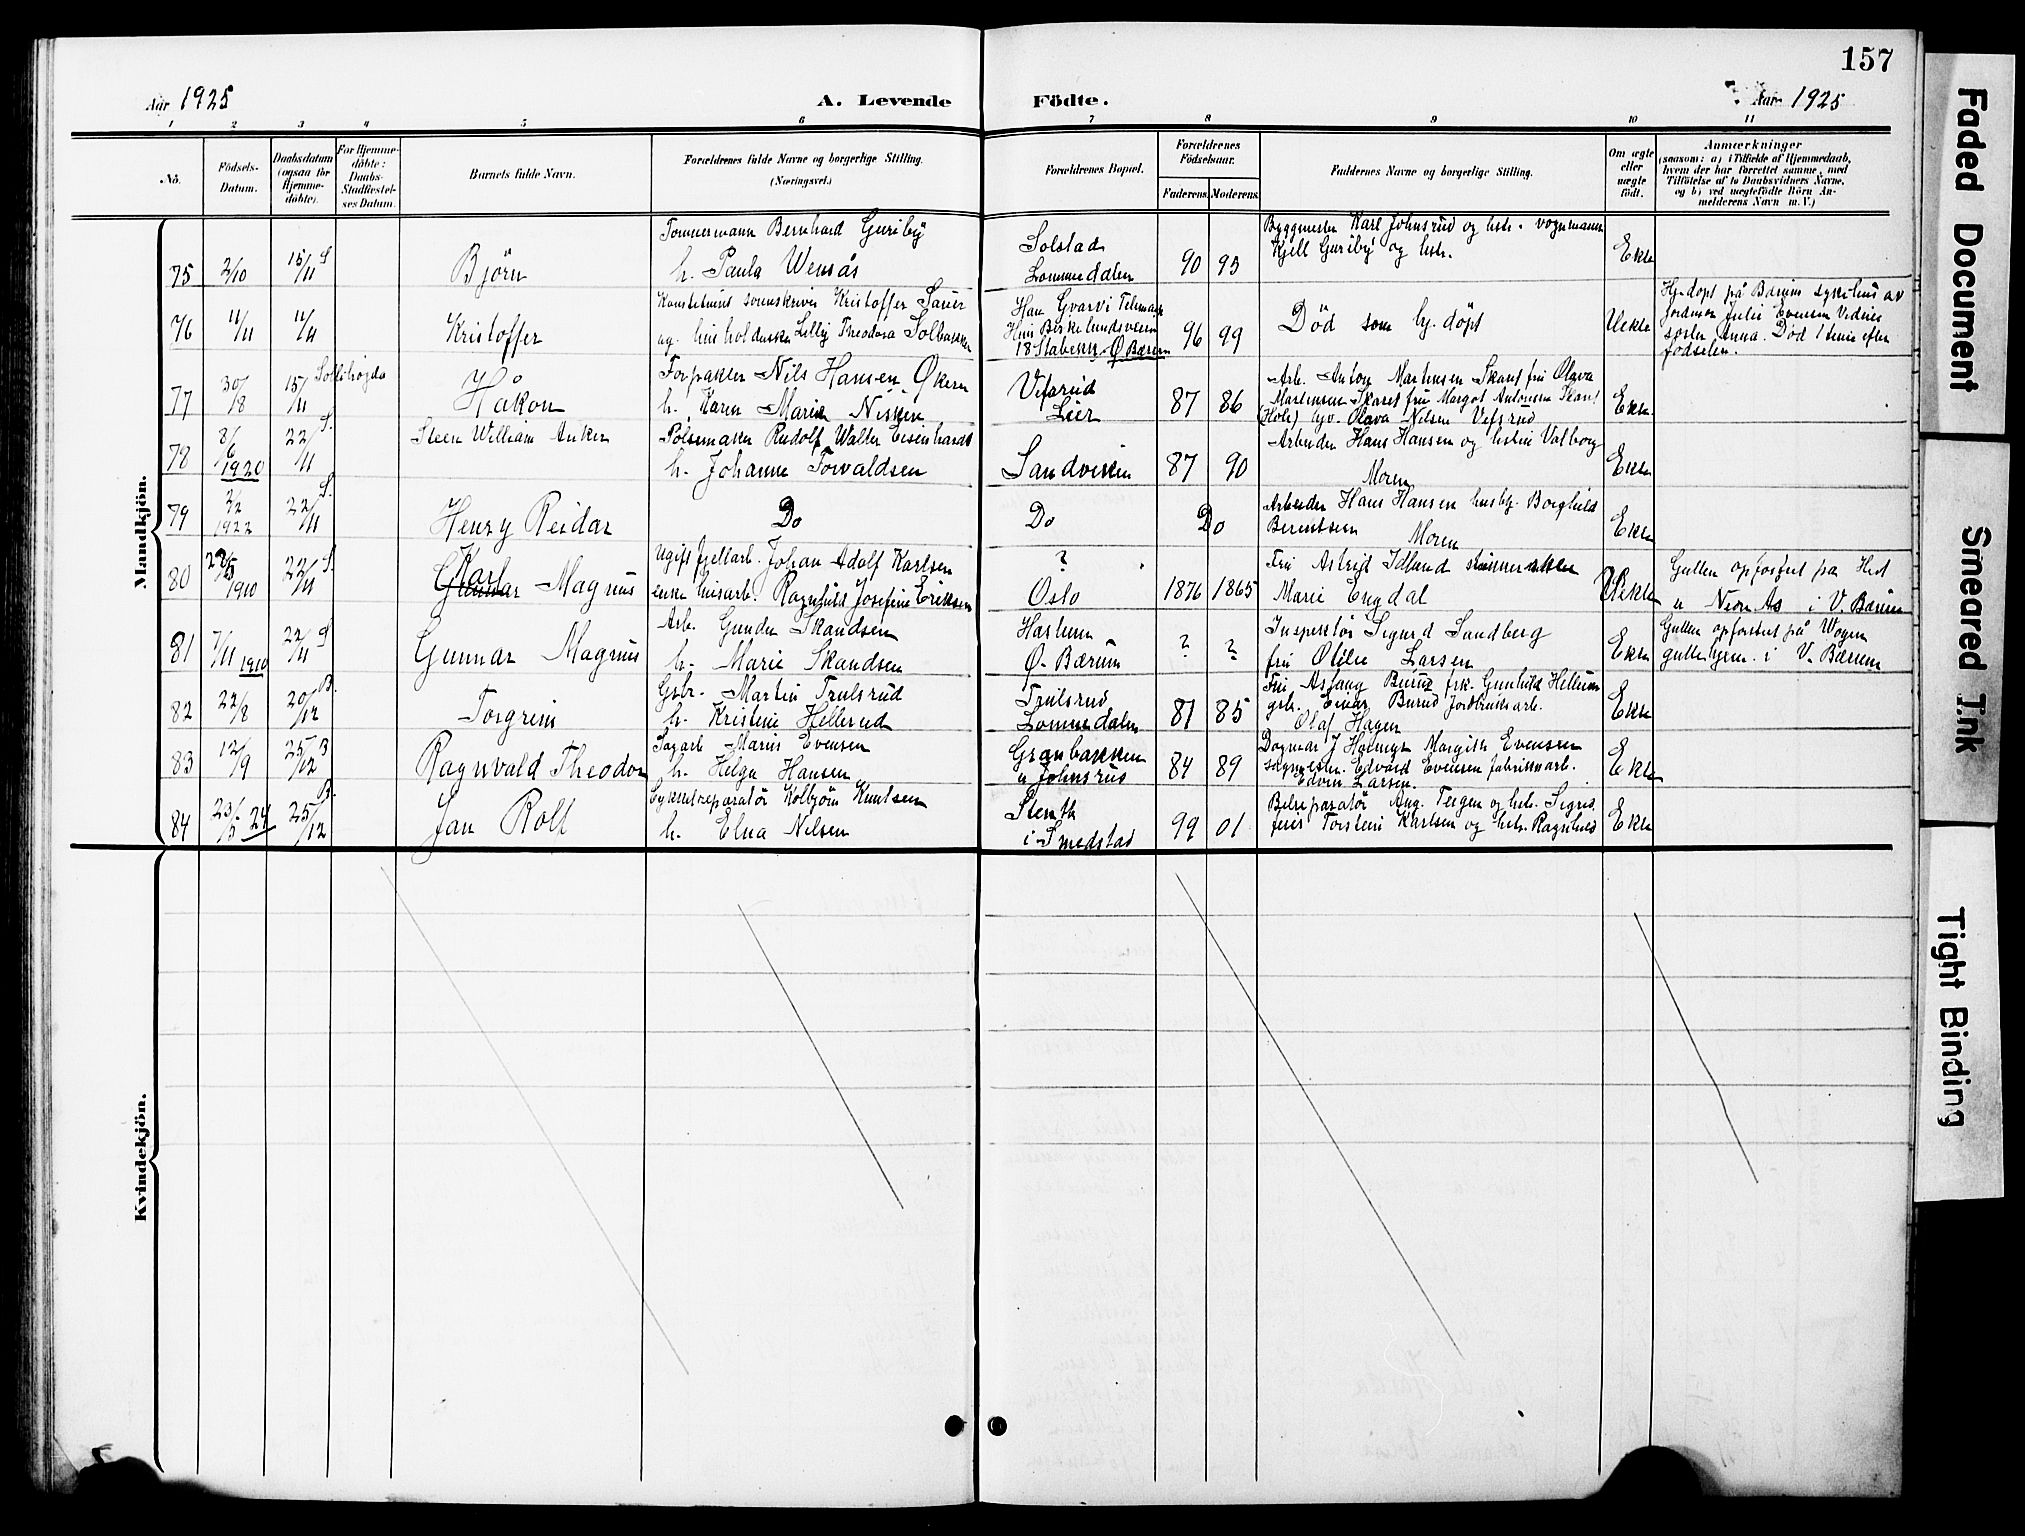 157
Aar 1925
A. Levende
Födte.
Aar 1925
1 2 3 4 5 6 7 8 9 10 11
No.
Födsels-
Datum.
Daabsdatum
(ogsaa for
Hjemme-
döbte).
For Hjemme-
döbte:
Daabs-
Stadfæstel-
ses Datum.
Barnets fulde Navn.
Forældrenes fulde Navne og borgerlige Stilling.
(Næringsvei.)
Forældrenes Bopæl.
Forældrenes
Födselsaar.
Faderens. Moderens.
Faddernes Navne og borgerlige Stilling.
Om ægte
eller
uægte
födt.
Anmærkninger
(saasom: a) i Tilfælde af Hjemmedaab,
hvem der har forrettet samme, med
Tilföielse af to Daabsvidners Navne,
og b) ved uægtefödte Börn An-
melderens Navn m. V.)
Mandkjön.
75 2/10 15/11 S
Björn
Tömmermann Bernhard Guriby
h. Paula Wensås
Solstad
Lommedalen
90 95
Byggmester Karl Johnsrud og hstr. vognmann
Kjell Guriby og hstr.
Ekte
76 11/11 11/11
Kristoffer
Kristoffer Sauer
ug. husholderske Lilly Theodora Solbakken
Han Gvarv i Telemark
Hun Birkelundsveien
18 Stabekk Ø. Bærum
96 99
Död som hj. döpt
Uekte
Hj.döpt på Bærums sykehus av
jordmor Julie Evensen Vidnes
söster Anna. Död 1 time efter
födselen.
77 30/8 15/11 Sollihögda
Håkon
Forpakter Nils Hansen Økern
h. Karen Marie Nisken
Vefsrud
Lier
87 86
Arb. Anton Martinsen Skaret fru Olava
Martinsen Skaret fru Margot Antonsen Skaret
(Hole) Olava Nilsen Vefsrud
Ekte
78 8/6 1920 22/11 S.
Steen William Anker
Pölsemaker Rudolf Walter Eisenhardt
h. Johanne Torvaldsen
Sandviken
87 90
Arbeider Hans Hansen og hstru Valborg
Moren
Ekte
79 2/2 1922 22/11 S.
Henry Reidar
Do
Do
Do
Arbeider Hans Hansen husbf. Borghild
Berentsen Moren
Ekte
80 1910 22/11 S.
Karl
Gunnar Magnus
Ugift fjellarb. Johan Adolf Karlsen
enke husarb. Ragnhild Josefine Eriksen
?
Oslo
1876 1865
Fru Astrid Idlund
Marie Engdal
Uekte
Gutten opfostret på
Nedre As i V. Bærum
81 7/11 1910 22/11 S
Gunnar Magnus
Arb. Gunder Skandsen
h. Marie Skandsen
Haslum
Ø. Bærum
? ?
Inspektör Sigurd Sundberg
fru Otilie Larsen
Ekte
Gutten opfostret på Wøyen
guttehjem i V. Bærum
82 22/8 20/12 B.
Torgrim
Gbr. Martin Trulsrud
h. Kristine Hellerud
Trulsrud
Lommedalen
81 85
Fru Aslaug Burud frk. Gunhild Hellerud
gbr. Einar Burud jordbruksarb.
Olaf Hagen
Ekte
83 12/9 25/12 B
Ragnvald Theodor
Sagarb. Marius Evensen
h. Helga Hansen
Granbakken
u Johnsrud
84 89
Dagmar J Margith Evensen
sagmester Edvard Evensen fabrikkarb.
Edvin Larsen.
Ekte
84 23/5 24 25/12 B.
Jan Rolf
Sykkelreparatör Kolbjörn Knutsen
h. Elna Nilsen
i Smedstad
99 01
Bilreparatör Aug. Teigen og hstr. Sigrid
Torstein Karlsen og hstr. Ragnhild
Ekte
Kvindekjön.
Faded Document
Smeared Ink
Tight Binding